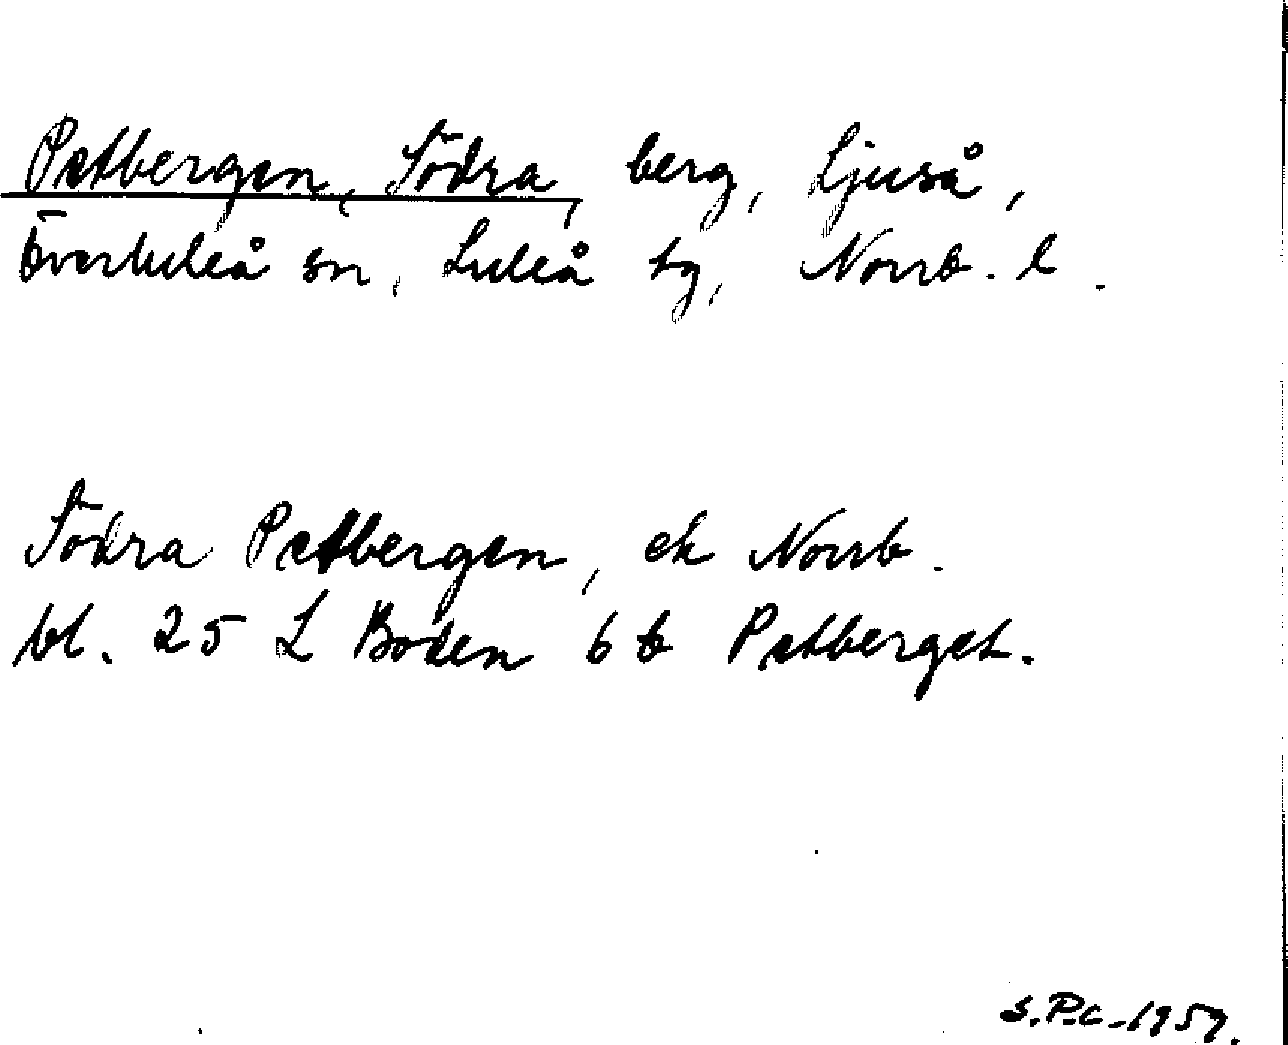 Petbergen, Södra, berg, Ljuså,
Överluleå sn, Luleå tg, Norrb. l.
Södra Petbergen, ek Norrb.
bl. 25 L Boden 6 b Petberget.
S.P.C. 1957.